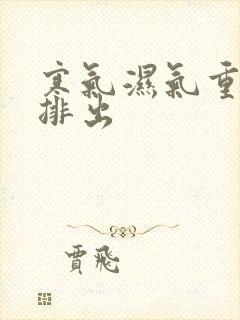 寒氣濕氣重
排出
賈飛